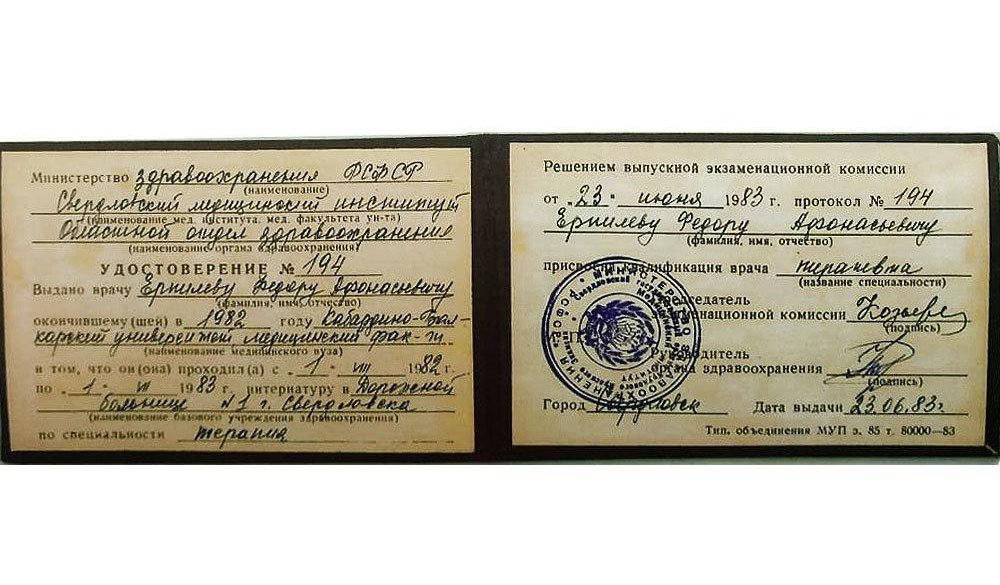 Министерство здравоохранения РСФСР
(наименование)
Свердловский медицинский институт
(наименование мед. института, мед. факультета ун-та)
Областной отдел здравоохранения
(наименование органа здравоохранения)
УДОСТОВЕРЕНИЕ № 194
Выдано врачу Ерпилеву Федору Афонасьевичу
(фамилия, имя, отчество)
окончившему(шей) в 1982 году Кабардино-Бал-
карский университет медицинский фак-т
(наименование медицинского вуза)
в том, что он(она) проходил(а) с 1 · VIII 1982 г.
по 1 · VII 1983 г. интернатуру в Дорожной
больнице №1 г. Свердловска
(наименование базового учреждения здравоохранения)
по специальности терапия
Решением выпускной экзаменационной комиссии
от "23" июня 1983 г. протокол № 194
Ерпилеву Федору Афонасьевичу
(фамилия, имя, отчество)
присвоена квалификация врача терапевта
(название специальности)
Председатель
экзаменационной комиссии
(подпись)
Руководитель
органа здравоохранения
(подпись)
Город Свердловск Дата выдачи 23.06.83г.
Тип. объединения МУП з. 85 т. 80000—83
МИНИСТЕРСТВО ЗДРАВООХРАНЕНИЯ РСФСР
Свердловский государственный медицинский институт